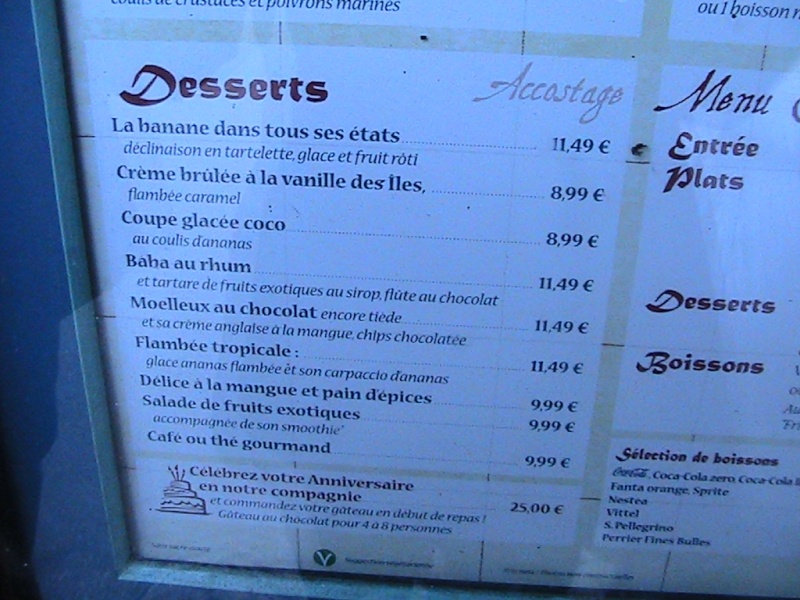 coulis de crustacés et poivrons marinés
ou 1 boisson
Desserts
Accostage
La banane dans tous ses états 11,49 €
déclinaison en tartelette, glace et fruit rôti
Crème brûlée à la vanille des Îles, 8,99 €
flambée caramel
Coupe glacée coco 8,99 €
au coulis d'ananas
Baba au rhum 11,49 €
et tartare de fruits exotiques au sirop, flûte au chocolat
Moelleux au chocolat encore tiède 11,49 €
et sa crème anglaise à la mangue, chips chocolatée
Flambée tropicale : 11,49 €
glace ananas flambée et son carpaccio d'ananas
Délice à la mangue et pain d'épices 9,99 €
Salade de fruits exotiques 9,99 €
accompagnée de son smoothie
Café ou thé gourmand 9,99 €
Célébrez votre Anniversaire
en notre compagnie
et commandez votre gâteau en début de repas ! 25,00 €
Gâteau au chocolat pour 4 à 8 personnes
V Suggestion végétarienne
Menu
Entrée
Plats
Desserts
Boissons
Sélection de boissons
Coca-Cola, Coca-Cola zero, Coca-Cola
Fanta orange, Sprite
Nestea
Vittel
S.Pellegrino
Perrier Fines Bulles